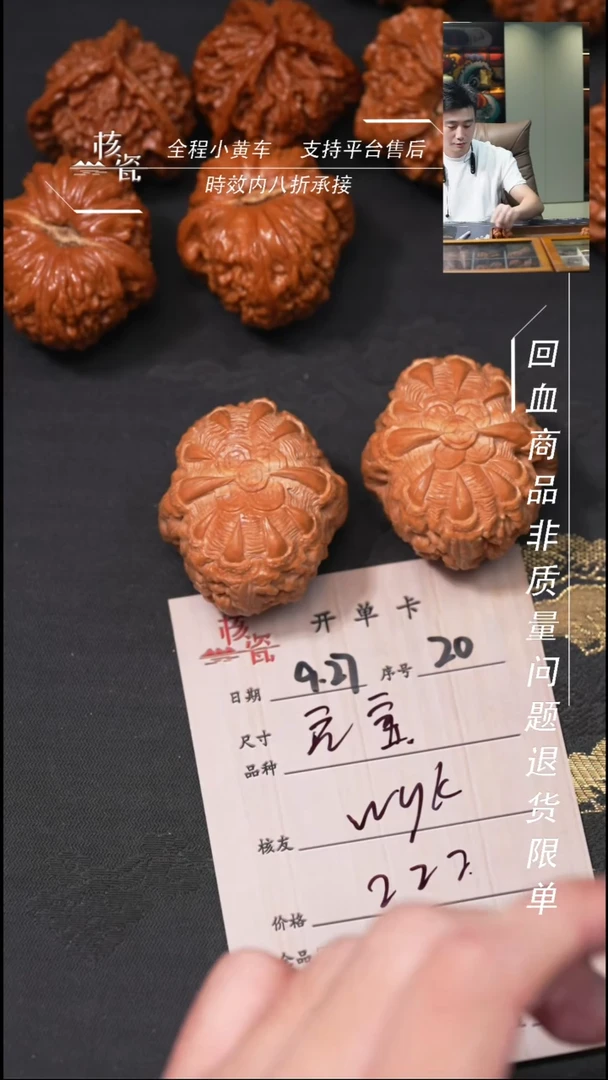 核瓷
全程小黄车 支持平台售后
時效内八折承接
回血商品非质量问题退货限单
核瓷
开单卡
日期 9.27 序号 20
尺寸
品种 元宝
核友 wyk
价格 222